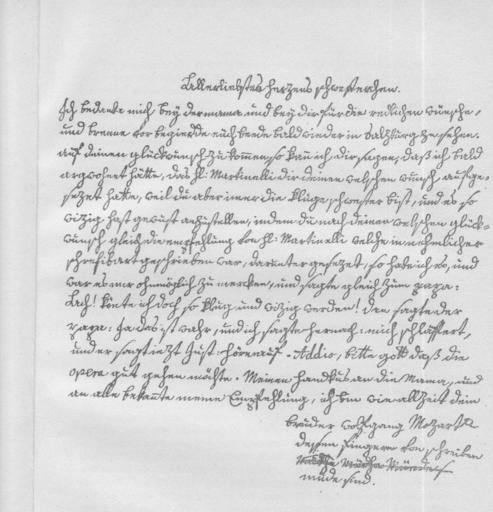 Allerliebstes herzens schwesterchen.
Ich bedanke mich beÿ der mama und beÿ dir für die redlichen wünsche,
und brenne vor begierdde eüch beede bald wieder in Salzburg zu sehen.
auf deinen glückwunsch zu kommen, so kan ich dir sagen, daß ich bald
argwohnet hätte, daß H: Martinelli dir deinen welschen wunsch aufge-
sezet hatte, weil du aber imer die kluge schwester bist, und es so
wizig hast gewust anzustellen, indem du nach deinen welschen glück-
wunsch gleich die empfehlung von H: Martinelli welche in nehmlicher
schreibart geschrieben war, darunter gesezet, so habe ich es, und
war es mir ohnmöglich zu mercken, und sagte gleich zum papa:
Ach! könte ich doch so klug und wizig werden! den sagte der
papa: Ja das ist wahr, und ich sagte hernach: mich schläffert,
und er sagt iezt Just: höre auf. Addio, bitte gott daß die
opera gut gehen möchte. Meinen handküs an die Mama, und
an alle bekante meine Empfehlung, ich bin wie allzeit dein
bruder wolfgang Mozart
dessen finger von schreiben
müde sind.